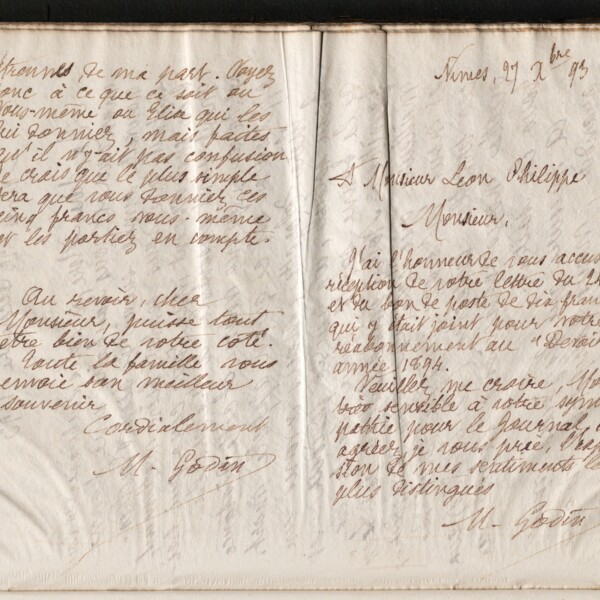 étrennes, de ma part. Voyez
donc à ce que ce soit ou
vous-même ou Elia qui les
lui donniez, mais faites
qu'il n'y ait pas confusion
Je crois que le plus simple
sera que vous donniez ces
cinq francs vous-même
et les portiez en compte.
Au revoir, cher
Monsieur, puisse tout
être bien de votre côté.
Toute la famille vous
envoie son meilleur
souvenir
Cordialement
M. Godin
Nimes, 27 Xbre 93
A Monsieur Leon Philippe
Monsieur,
J'ai l'honneur de vous accus
réception de votre lettre du
et du bon de poste de dix fran
qui y était joint pour votre
réabonnement au "Devoir
année 1894.
Veuillez me croire, Mo
très sensible à votre sym
pathie pour le journal,
agréer, je vous prie, l'exp
sion de mes sentiments le
plus distingués
M. Godin